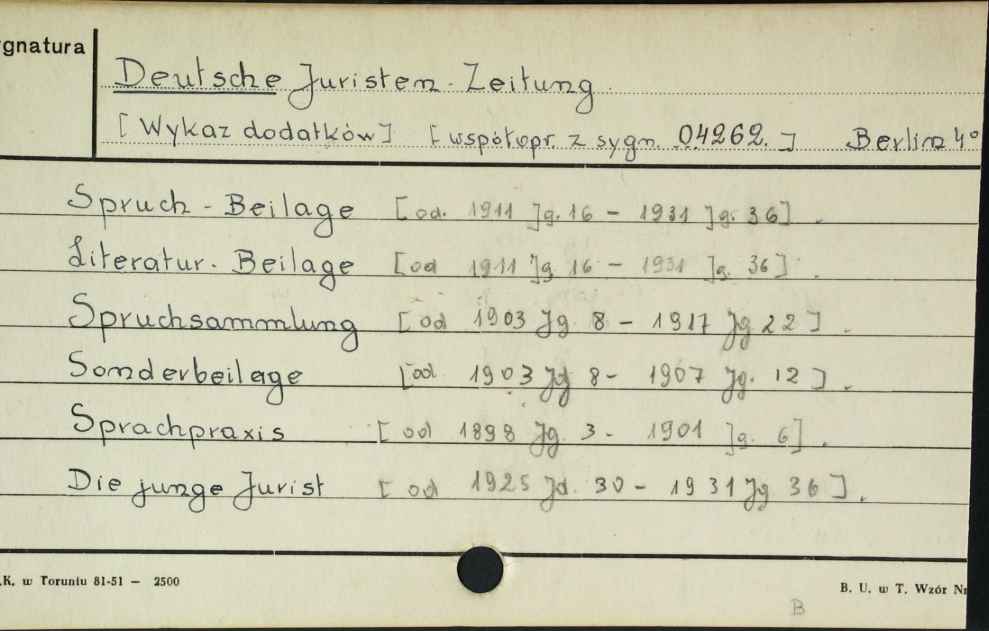 ygnatura
Deutsche Juristen-Zeitung
[Wykaz dodatków] [współopr. z sygn. 04262.] Berlin 4°
Spruch-Beilage [od. 1911 Jg. 16 - 1931 Jg. 36].
Literatur-Beilage [od 1911 Jg 16 - 1931 Jg. 36].
Spruchsammlung [od 1903 Jg. 8 - 1917 Jg 22].
Sonderbeilage [od 1903 Jg 8 - 1907 Jg. 12].
Sprachpraxis [od 1898 Jg. 3 - 1901 Jg. 6].
Die junge Jurist [od 1925 Jd. 30 - 1931 Jg 36].
.K. w Toruniu 81-51 — 2500
B. U. w T. Wzór Nr
B